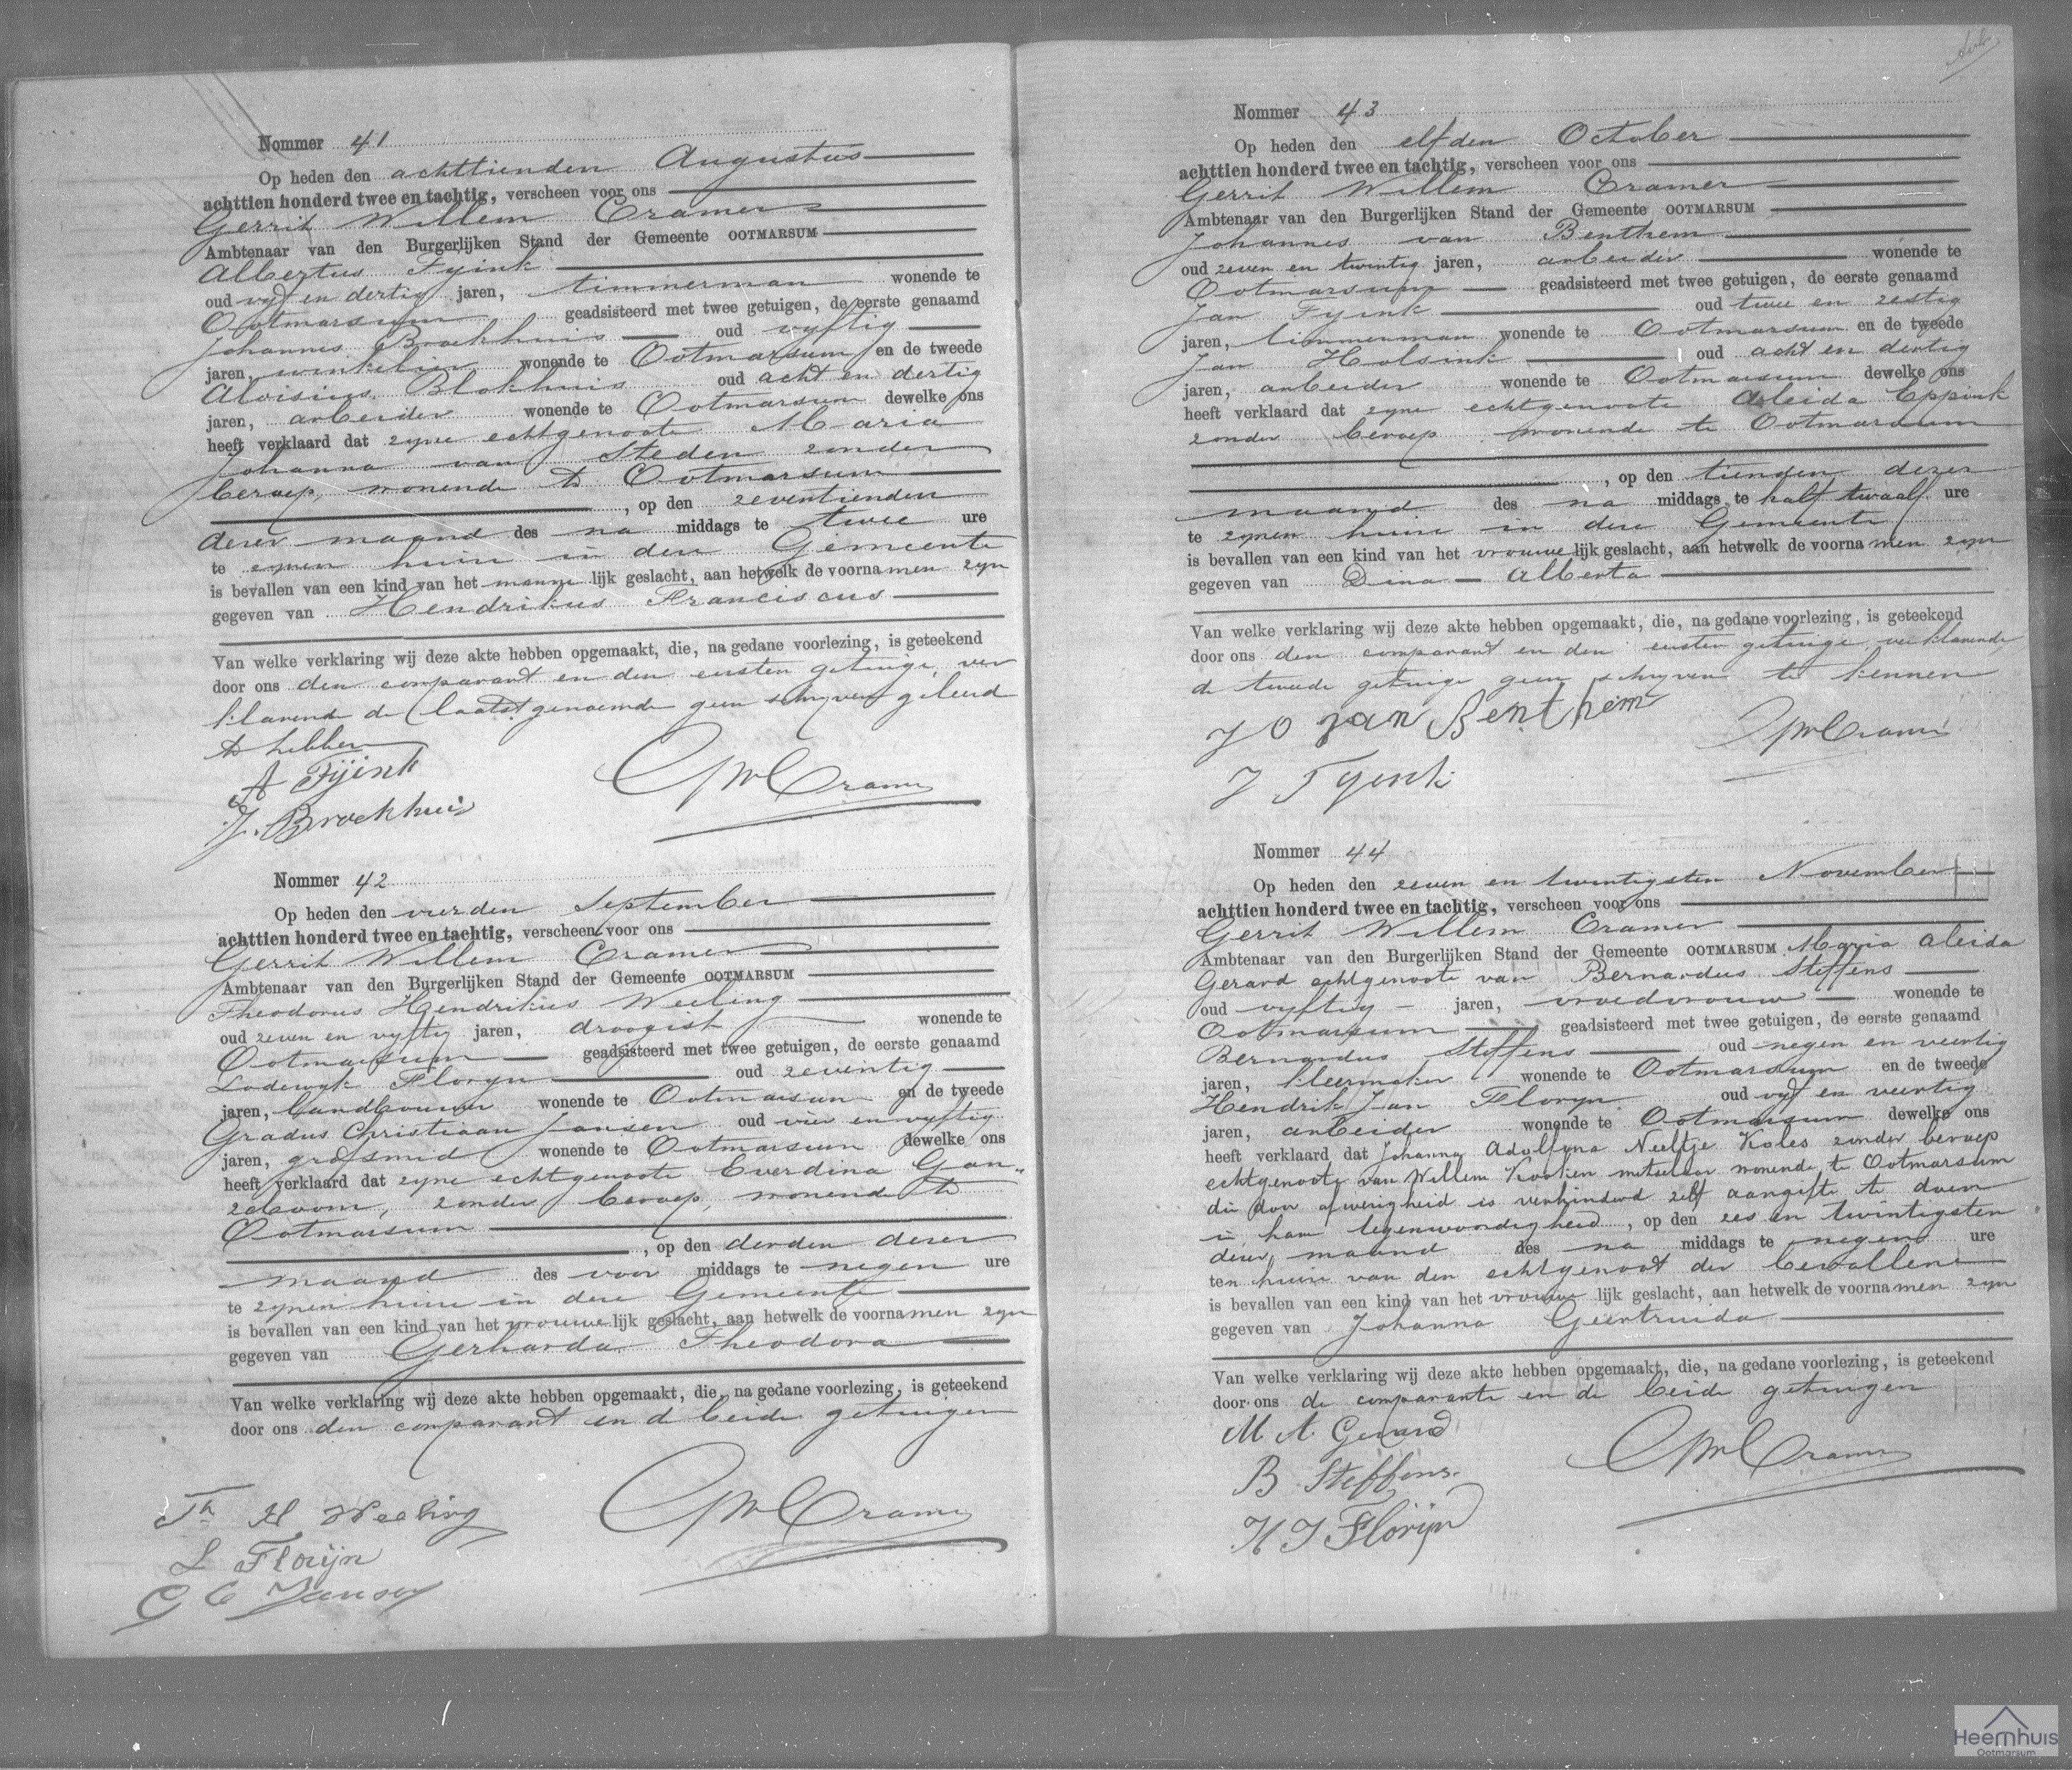 Nommer 41
Op heden den achttienden Augustus
achttien honderd twee en tachtig, verscheen voor ons
Gerrit Willem Cramer
Ambtenaar van den Burgerlijken Stand der Gemeente OOTMARSUM
Albertus Fyink
oud vyf en dertig jaren, timmerman wonende te
Ootmarsum geadsisteerd met twee getuigen, de eerste genaamd
Johannes Broekhuis oud vyftig
jaren, winkelier wonende te Ootmarsum en de tweede
Aloisius Blokhuis oud acht en dertig
jaren, arbeider wonende te Ootmarsum dewelke ons
heeft verklaard dat zyne echtgenoote Maria
Johanna van Steden zonder
beroep, wonende te Ootmarsum
, op den zeventienden
dezer maand des na middags te twee ure
te zynen huize in deze Gemeente
is bevallen van een kind van het manne lijk geslacht, aan hetwelk de voorna men zyn
gegeven van Hendrikus Franciscus
Van welke verklaring wij deze akte hebben opgemaakt, die, na gedane voorlezing, is geteekend
door ons den comparant en den eersten getuige, ver
klarende de laatstgenoemde geen schryven geleerd
te hebben
A Fijink
J. Broekhuis
GWCramer
Nommer 42
Op heden den vierden September
achttien honderd twee en tachtig, verscheen voor ons
Gerrit Willem Cramer
Ambtenaar van den Burgerlijken Stand der Gemeente OOTMARSUM
Theodorus Hendrikus Weeling
oud zeven en vyftig jaren, droogist wonende te
Ootmarsum geadsisteerd met twee getuigen, de eerste genaamd
Lodewyk Floryn oud zeventig
jaren, landbouwer wonende te Ootmarsum en de tweede
Gradus Christiaan Jansen oud vier en vyftig
jaren, grofsmid wonende te Ootmarsum dewelke ons
heeft verklaard dat zyne echtgenoote Everdina Gan-
zeboom, zonder beroep, wonende te
Ootmarsum
, op den derden dezer
maand des voor middags te negen ure
te zynen huize in deze Gemeente
is bevallen van een kind van het vrouwe lijk geslacht, aan hetwelk de voorna men zyn
gegeven van Gerharda Theodora
Van welke verklaring wij deze akte hebben opgemaakt, die, na gedane voorlezing, is geteekend
door ons den comparant en d beide getuigen
Th H Weeling
L Florijn
G C Jansen
GWCramer
Nommer 43
Op heden den elfden October
achttien honderd twee en tachtig, verscheen voor ons
Gerrit Willem Cramer
Ambtenaar van den Burgerlijken Stand der Gemeente OOTMARSUM
Johannes van Benthem
oud zeven en twintig jaren, arbeider wonende te
Ootmarsum geadsisteerd met twee getuigen, de eerste genaamd
Jan Fyink oud twee en zestig
jaren, timmerman wonende te Ootmarsum en de tweede
Jan Holsink oud acht en dertig
jaren, arbeider wonende te Ootmarsum dewelke ons
heeft verklaard dat zyne echtgenoote Aleida Eppink
zonder beroep wonende te Ootmarsum
, op den tienden dezer
maand des na middags te half twaalf ure
te zynen huize in deze Gemeente
is bevallen van een kind van het vrouwe lijk geslacht, aan hetwelk de voorna men zyn
gegeven van Dina Alberta
Van welke verklaring wij deze akte hebben opgemaakt, die, na gedane voorlezing, is geteekend
door ons den comparant en den eersten getuige verklarende
de tweede getuige geen schryven te kennen
JO van Benthem
J Fyink
GWCramer
Nommer 44
Op heden den zeven en twintigsten November
achttien honderd twee en tachtig, verscheen voor ons
Gerrit Willem Cramer
Ambtenaar van den Burgerlijken Stand der Gemeente OOTMARSUM Maria Aleida
Gerard echtgenoote van Bernardus Steffens
oud vyftig jaren, vroedvrouw wonende te
Ootmarsum geadsisteerd met twee getuigen, de eerste genaamd
Bernardus Steffens oud negen en veertig
jaren, kleermaker wonende te Ootmarsum en de tweede
Hendrik Jan Floryn oud vyf en veertig
jaren, arbeider wonende te Ootmarsum dewelke ons
heeft verklaard dat Johanna Adolfyna Neeltje Koles zonder beroep
echtgenoote van Willem metselaar wonende te Ootmarsum
die door afwezigheid is verhinderd zelf aangifte te doen
in haar tegenwoordigheid, op den zes en twintigsten
dezer maand des na middags te negen ure
ten huize van den echtgenoot der bevallene
is bevallen van een kind van het vrouwe lijk geslacht, aan hetwelk de voorna men zyn
gegeven van Johanna Geertruida
Van welke verklaring wij deze akte hebben opgemaakt, die, na gedane voorlezing, is geteekend
door ons de comparante en de beide getuigen
M A Gerard
B Steffens.
H J Florijn
GWCramer
Heemhuis
Ootmarsum